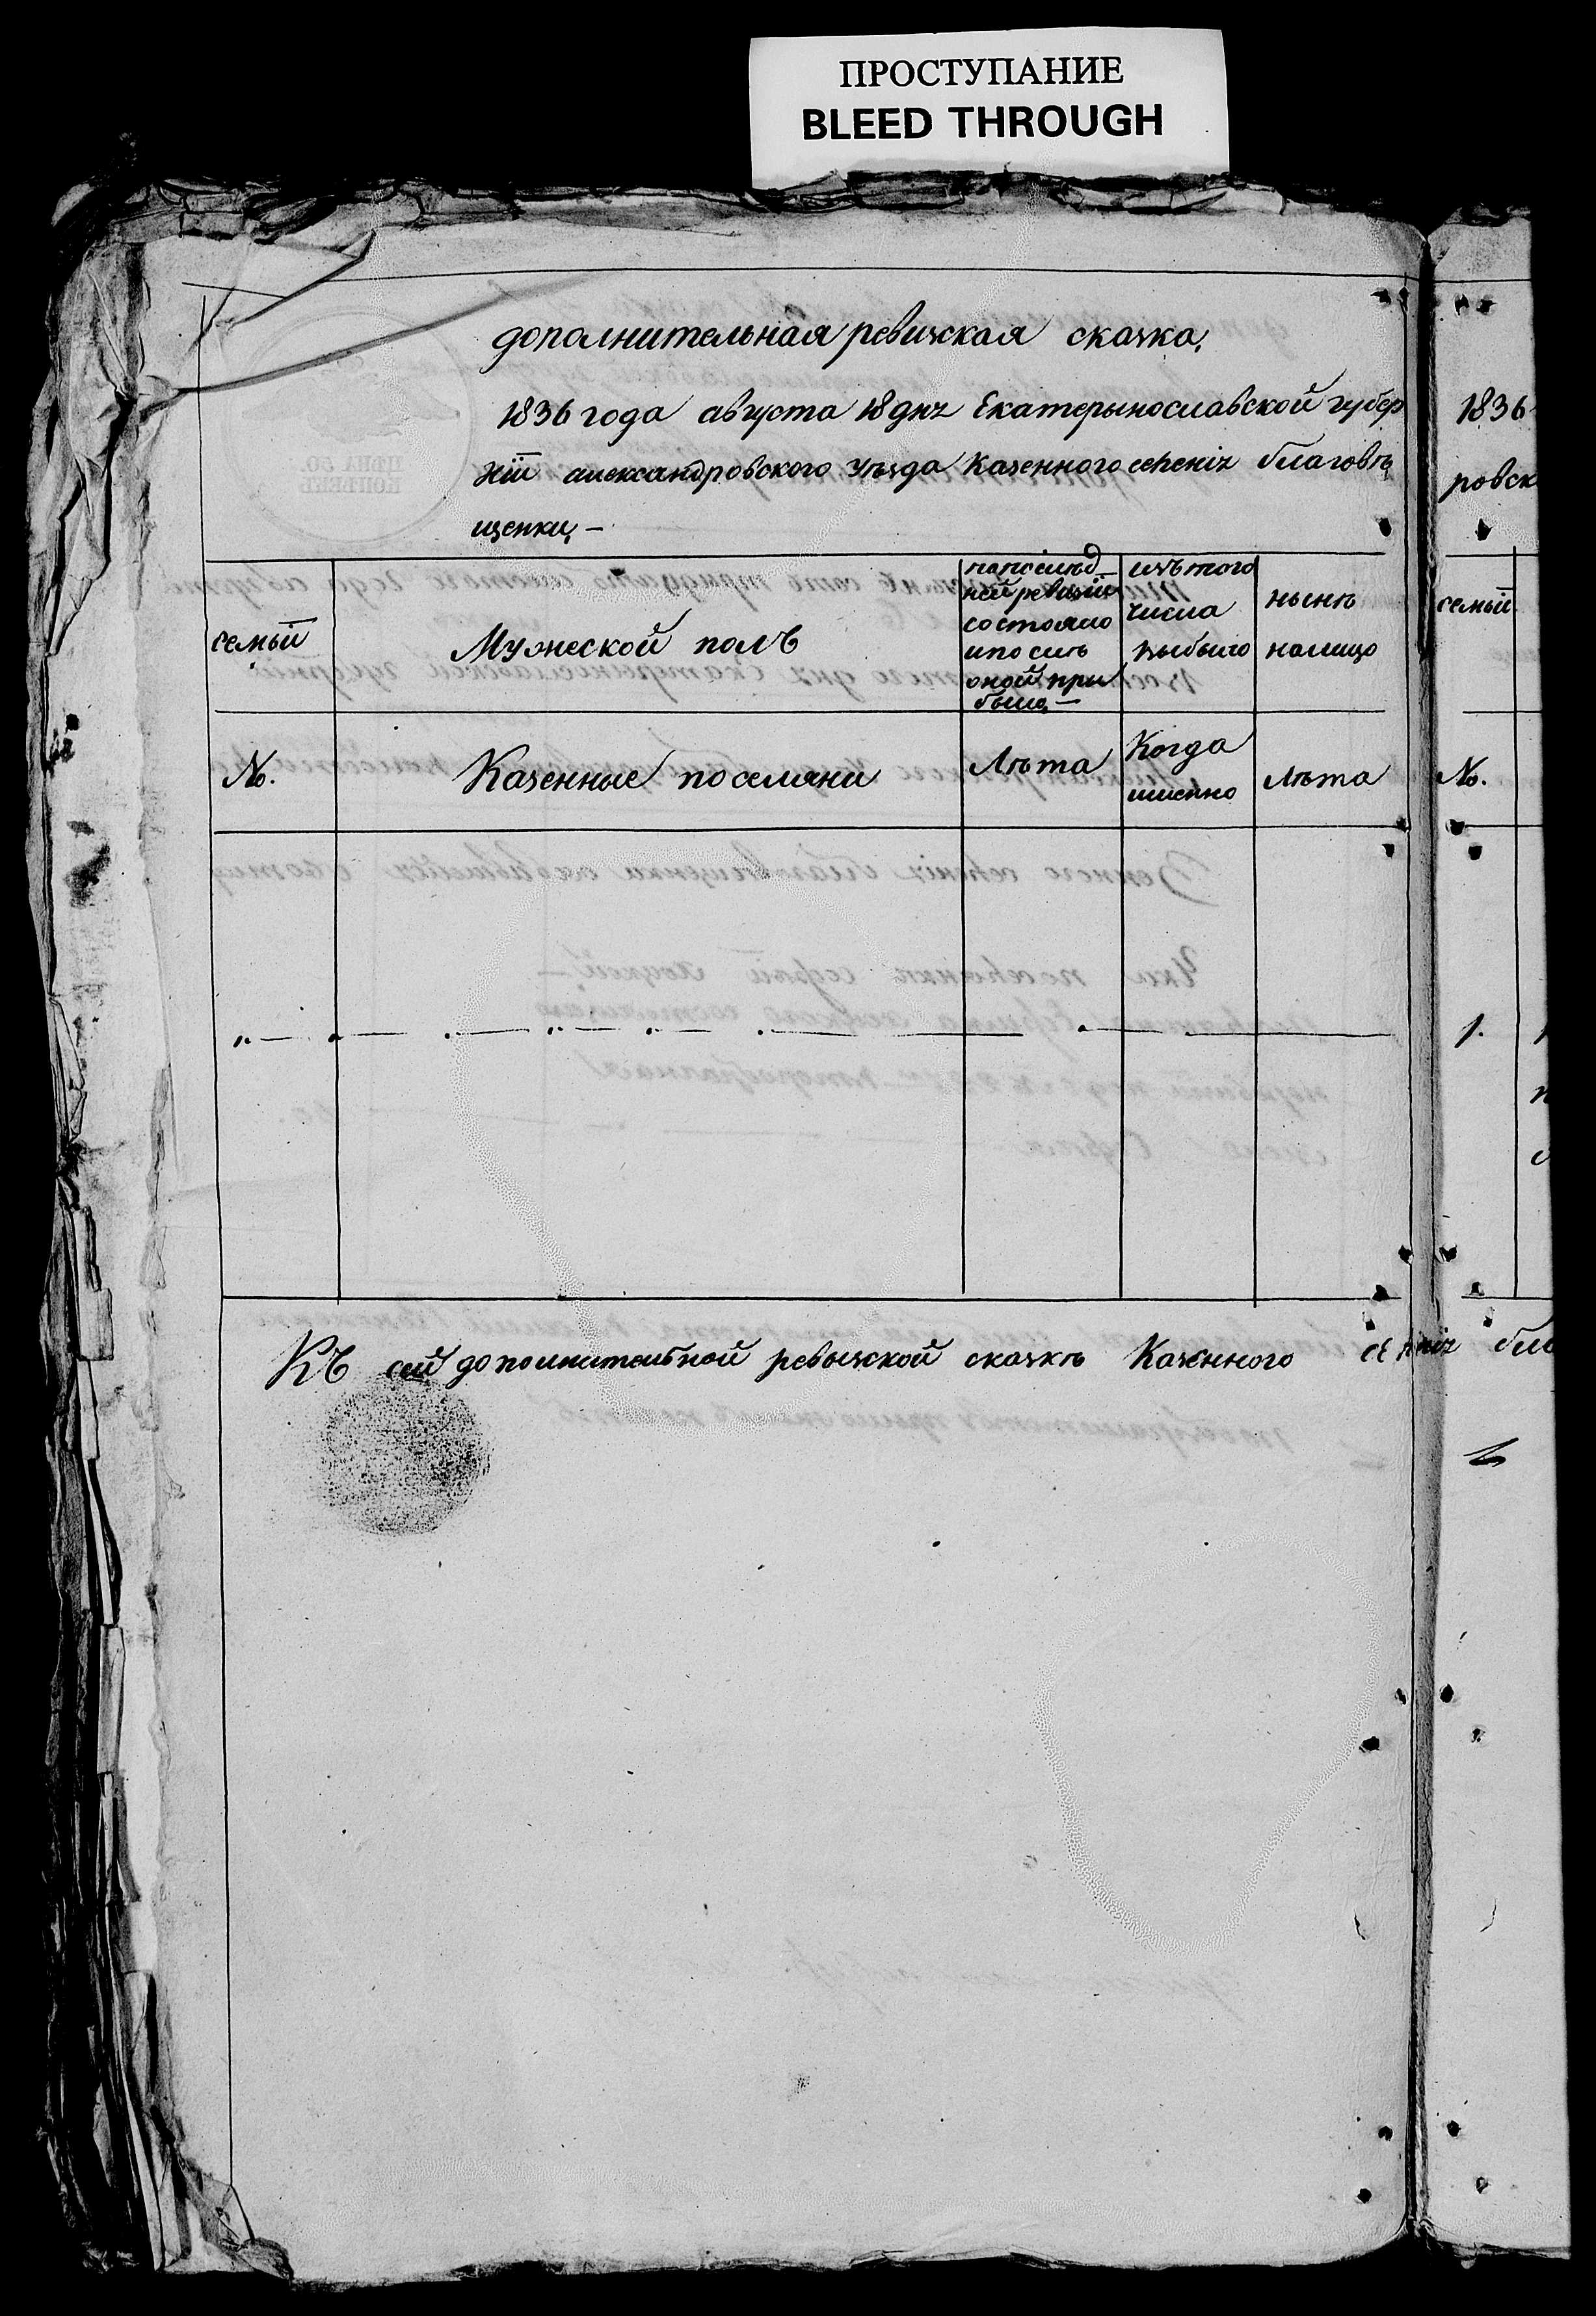 ПРОСТУПАНИЕ
BLEED THROUGH
дополнительная ревизская сказка,
1836 года августа 18 дня Екатерынославской губер
нїи александровского уѣзда Казенного селенія благовѣ
щенки, —
семьи
Мужеской полъ
напослѣд
ней ревизіи
состояло
ипослѣ
оной при
было, —
изътого
числа
выбыло
нынѣ
налицо
№.
Казенные поселяни
Лѣта
Когда
имянно
Лѣта
Къ сей дополнительной ревызской сказкѣ Казенного селенія бла
1836
ровск
семьи
№.
1.